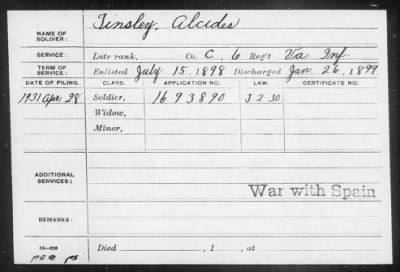 NAME OF SOLDIER: Tinsley, Alcides
SERVICE: Late rank, Co. C, 6 Reg't Va Inf.
TERM OF SERVICE: Enlisted July 15, 1898 Discharged Jan 26, 1899
DATE OF FILING. CLASS. APPLICATION NO. LAW. CERTIFICATE NO.
1931 Apr 28 Soldier, 1693890 J 2 30
Widow,
Minor,
ADDITIONAL SERVICES:
War with Spain
REMARKS:
Died , 1 , at